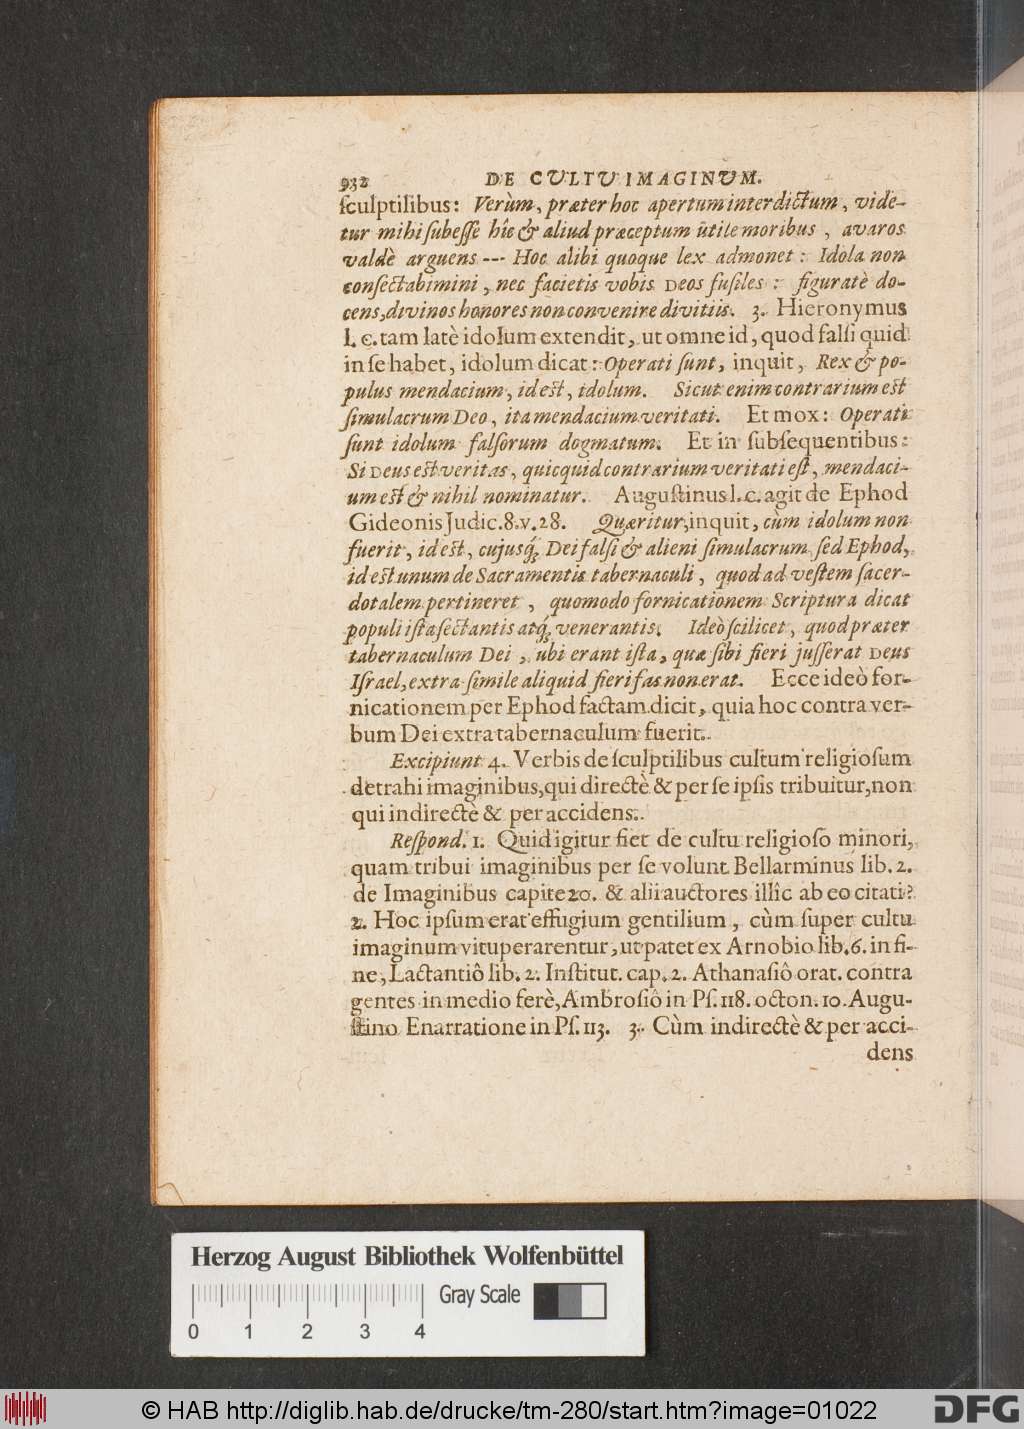 932 DE CULTU IMAGINUM.
ſculptilibus: Verùm, præter hoc apertum interdictum, vide-
tur mihi ſubeſſe hîc & aliud præceptum ūtile moribus, avaros
valdè arguens --- Hoc alibi quoque lex admonet: Idola non
conſectabimini, nec facietis vobis Deos fuſiles: figuratè do-
cens, divinos honores non convenire divitiis. 3. Hieronymus
l. c. tam latè idolum extendit, ut omne id, quod falſi quid
in ſe habet, idolum dicat: Operati ſunt, inquit, Rex & po-
pulus mendacium, id eſt, idolum. Sicut enim contrarium eſt
ſimulacrum Deo, ita mendacium veritati. Et mox: Operati
ſunt idolum falſorum dogmatum. Et in ſubſequentibus:
Si Deus eſt veritas, quicquid contrarium veritati eſt, mendaci-
um eſt & nihil nominatur. Auguſtinus l. c. agit de Ephod
Gideonis Judic. 8. v. 28. Quæritur, inquit, cùm idolum non
fuerit, id eſt, cujusq́; Dei falſi & alieni ſimulacrum, ſed Ephod,
id eſt unum de Sacramentis tabernaculi, quod ad veſtem ſacer-
dotalem pertineret, quomodo fornicationem Scriptura dicat
populi iſta ſectantis atq́; venerantis. Ideò ſcilicet, quod præter
tabernaculum Dei, ubi erant iſta, quæ ſibi fieri juſſerat Deus
Iſrael, extra ſimile aliquid fieri fas non erat. Ecce ideò for-
nicationem per Ephod factam dicit, quia hoc contra ver-
bum Dei extra tabernaculum fuerit.
Excipiunt 4. Verbis de ſculptilibus cultum religioſum
detrahi imaginibus, qui directè & per ſe ipſis tribuitur, non
qui indirectè & per accidens.
Reſpond. 1. Quid igitur fiet de cultu religioſo minori,
quam tribui imaginibus per ſe volunt Bellarminus lib. 2.
de Imaginibus capite 20. & alii auctores illîc ab eo citati?
2. Hoc ipſum erat effugium gentilium, cùm ſuper cultu
imaginum vituperarentur, ut patet ex Arnobio lib. 6. in fi-
ne, Lactantiô lib. 2. Inſtitut. cap. 2. Athanaſiô orat. contra
gentes in medio ferè, Ambroſiô in Pſ. 118. octon. 10. Augu-
ſtino Enarratione in Pſ. 113. 3. Cùm indirectè & per acci-
dens
Herzog August Bibliothek Wolfenbüttel
Gray Scale
0 1 2 3 4
© HAB http://diglib.hab.de/drucke/tm-280/start.htm?image=01022
DFG